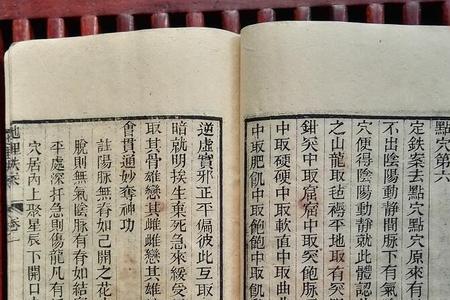 點穴第六
定鉄案去點穴點穴原來有
不出陰陽動靜間脈下有氣
穴便得陰陽動靜就此體認
之山龍取毡褥平地取有突
鉗突中取窟窟中取突飽脈
中取硬硬中取軟直中取曲
中取肥飢中取飽飽中取飢
逆虛實邪正平偏彼此互取
暗就明挨生棄死急來緩受
取其骨雄巒其雌雌巒其雄
會貫通妙奪神功
註陽脈無脊如己開之花
脫則無氣陰脈有脊如結
平處深扦急則傷龍凡有
穴居內上聚星辰下開口